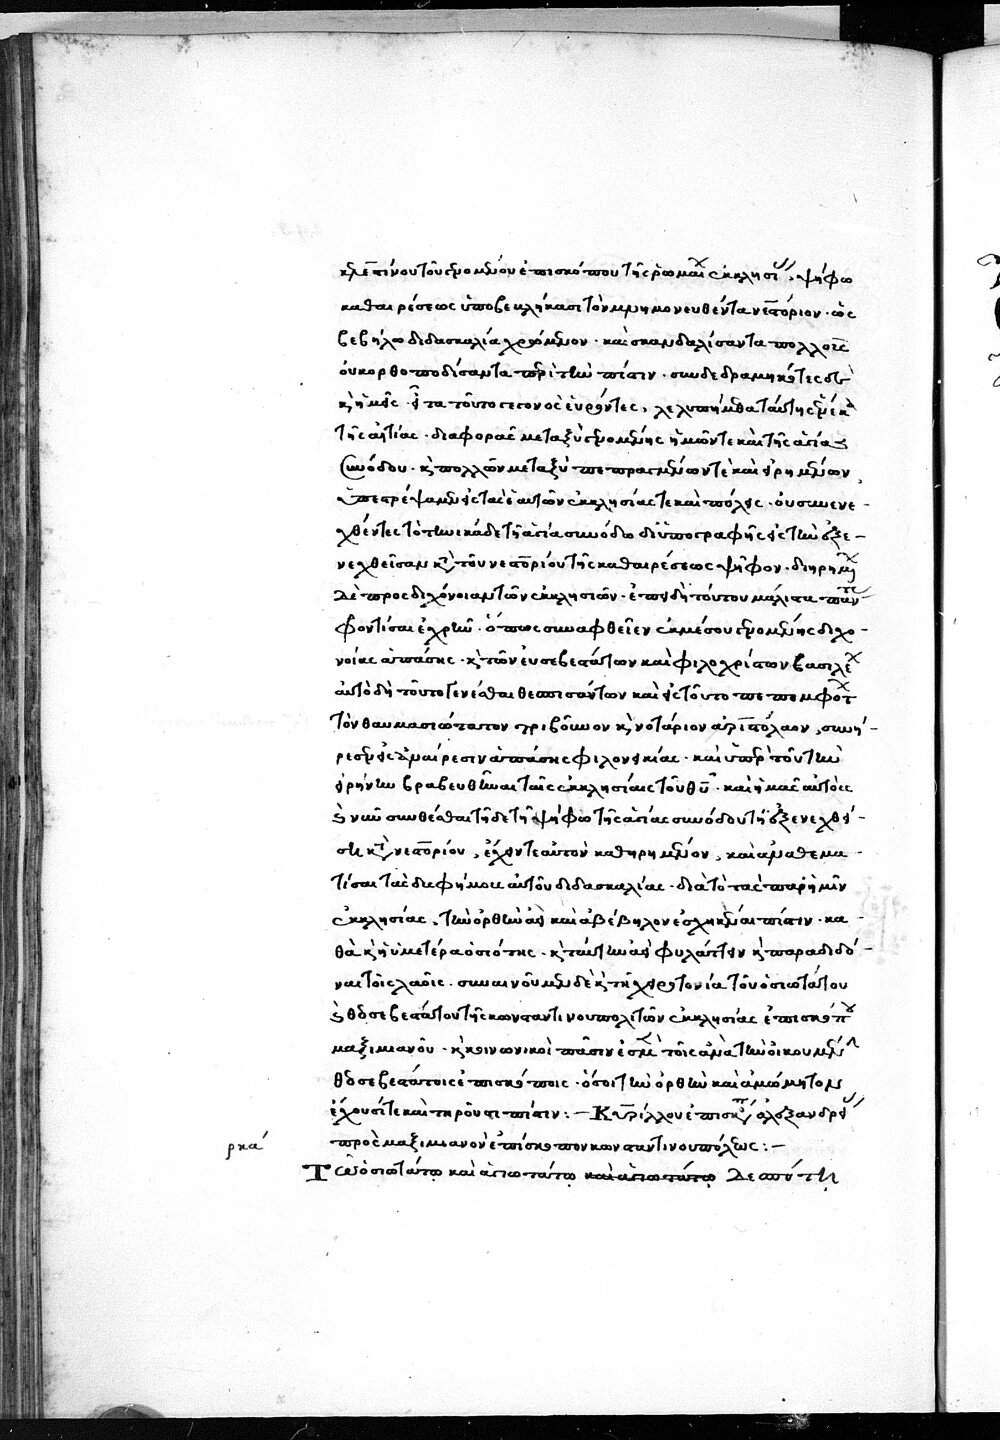 κελεστίνου τοῦ γενομένου ἐπισκόπου τῆς ῥωμαίων ἐκκλησίας, ψήφω
καθαιρέσεως ὑποβεβλήκασι τὸν μνημονευθέντα νεστόριον · ὡς
βεβήλω διδασκαλία χρώμενον · καὶ σκανδαλίσαντα πολλοὺς
οὐκ ὀρθοποδήσαντα περὶ τὴν πίστιν · συνδεδραμηκότες δὲ
κ ἡμεῖς · ἐπὶ τοῦτο γεγονὸς εὑρόντες, λελυπήμεθα
τῆς αἰτίας · διαφορᾶς μεταξὺ γενομένης ἡμῶν τε καὶ τῆς ἁγίας
συνόδου · κ πολλῶν μεταξὺ πεπραγμένων τε καὶ εἰρημένων,
ὑπεστρέψαμεν εἰς τὰς ἑαυτῶν ἐκκλησίας τε καὶ πόλεις · οὐ συνενε-
χθέντες τὸ τηνικάδε τῆ ἁγία συνόδω δι' ὑπογραφῆς εἰς τὴν ἐξε-
νεχθεῖσαν κατὰ τοῦ νεστορίου τῆς καθαιρέσεως ψῆφον · διηρημένων
δὲ πρὸς διχόνοιαν τῶν ἐκκλησιῶν · ἐπειδὴ τούτου μάλιστα πάντων
φροντίσαι ἐχρῆν · ὅπως συναφθεῖεν ἐκ μέσου γενομένης διχο-
νοίας ἁπάσης · κ τῶν εὐσεβεστάτων καὶ φιλοχρίστων βασιλέων
αὐτὸ δὴ τοῦτο γενέσθαι θεσπισάντων καὶ εἰς τοῦτο πεπομφότων
τὸν θαυμασιώτατον τριβοῦνον κ νοτάριον ἀριστόλαον, συνή-
ρεσεν εἰς ἀναίρεσιν ἁπάσης φιλονεικίας · καὶ ὑπὲρ τοῦ τὴν
εἰρήνην βραβευθῆναι ταῖς ἐκκλησίαις τοῦ θῦ · καὶ ἡμᾶς αὐτοὺς
ἐν συνθέσθαι τῆδε τῆ ψήφω τῆς ἁγίας συνόδου τῆ ἐξενεχθεί-
ση κατὰ νεστορίου, ἔχειν τε αὐτὸν καθηρημένον, καὶ ἀναθεμα-
τίσαι τὰς δυσφήμους αὐτοῦ διδασκαλίας · διὰ τὸ τὰς παρ' ἡμῖν
ἐκκλησίας, τὴν ὀρθὴν ἀεὶ καὶ ἀβέβηλον ἐσχηκέναι πίστιν · κα-
θὰ κ ἡ ὑμετέρα ὁσιότης · κ ταύτην ἀεὶ φυλάττειν κ παραδιδό-
ναι τοῖς λαοῖς · συναινοῦμεν δὲ κ τῆ χειροτονία τοῦ ὁσιωτάτου
κ θεοσεβεστάτου τῆς κωνσταντινουπολιτῶν ἐκκλησίας ἐπισκόπου
μαξιμιανοῦ · κ κοινωνικοὶ πᾶσιν ἐσμὲν τοῖς ἀνὰ τὴν οἰκουμένην
θεοσεβεστάτοις ἐπισκόποις · ὅσοι τὴν ὀρθὴν καὶ ἀμώμητον
ἔχουσί τε καὶ τηροῦσι πίστιν : – Κυρίλλου ἐπισκόπου ἀλεξανδρείας
ρκα΄ πρὸς μαξιμιανὸν ἐπίσκοπον κωνσταντινουπόλεως : –
Τῶ ὁσιωτάτω καὶ ἁγιωτάτω καὶ ἁγιωτάτω δεσπότη